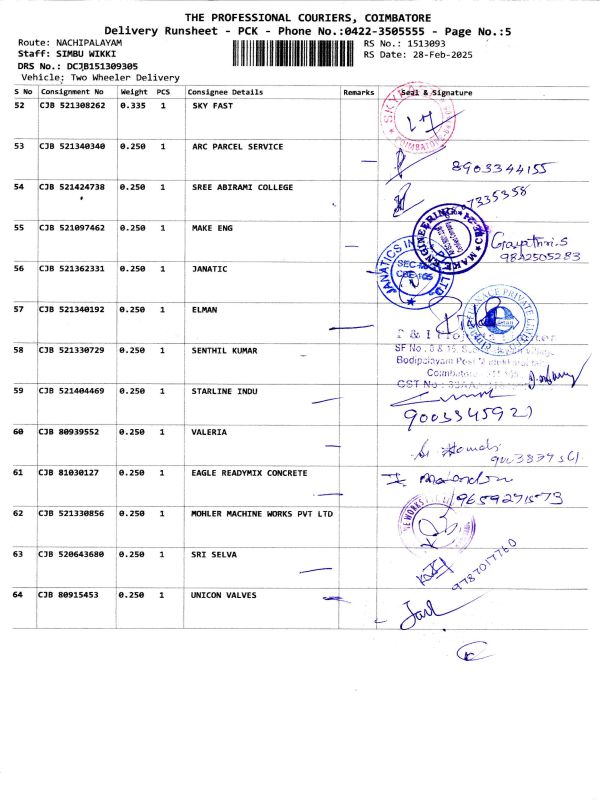 THE PROFESSIONAL COURIERS, COIMBATORE
Delivery Runsheet - PCK - Phone No.:0422-3505555 - Page No.:5
Route: NACHIPALAYAM
RS No.: 1513093
Staff: SIMBU WIKKI
RS Date: 28-Feb-2025
DRS No.: DCJB151309305
Vehicle: Two Wheeler Delivery
S No Consignment No Weight PCS Consignee Details Remarks Seal & Signature
52 CJB 521308262 0.335 1 SKY FAST
53 CJB 521340340 0.250 1 ARC PARCEL SERVICE
8903344155
54 CJB 521424738 0.250 1 SREE ABIRAMI COLLEGE
55 CJB 521097462 0.250 1 MAKE ENG
MAKE ENGINEERING
Gayathri.S
9842505283
56 CJB 521362331 0.250 1 JANATIC
57 CJB 521340192 0.250 1 ELMAN
58 CJB 521330729 0.250 1 SENTHIL KUMAR
Bodipalayam Post
59 CJB 521404469 0.250 1 STARLINE INDU
60 CJB 80939552 0.250 1 VALERIA
61 CJB 81030127 0.250 1 EAGLE READYMIX CONCRETE
9659271573
62 CJB 521330856 0.250 1 MOHLER MACHINE WORKS PVT LTD
63 CJB 520643680 0.250 1 SRI SELVA
9787017760
64 CJB 80915453 0.250 1 UNICON VALVES